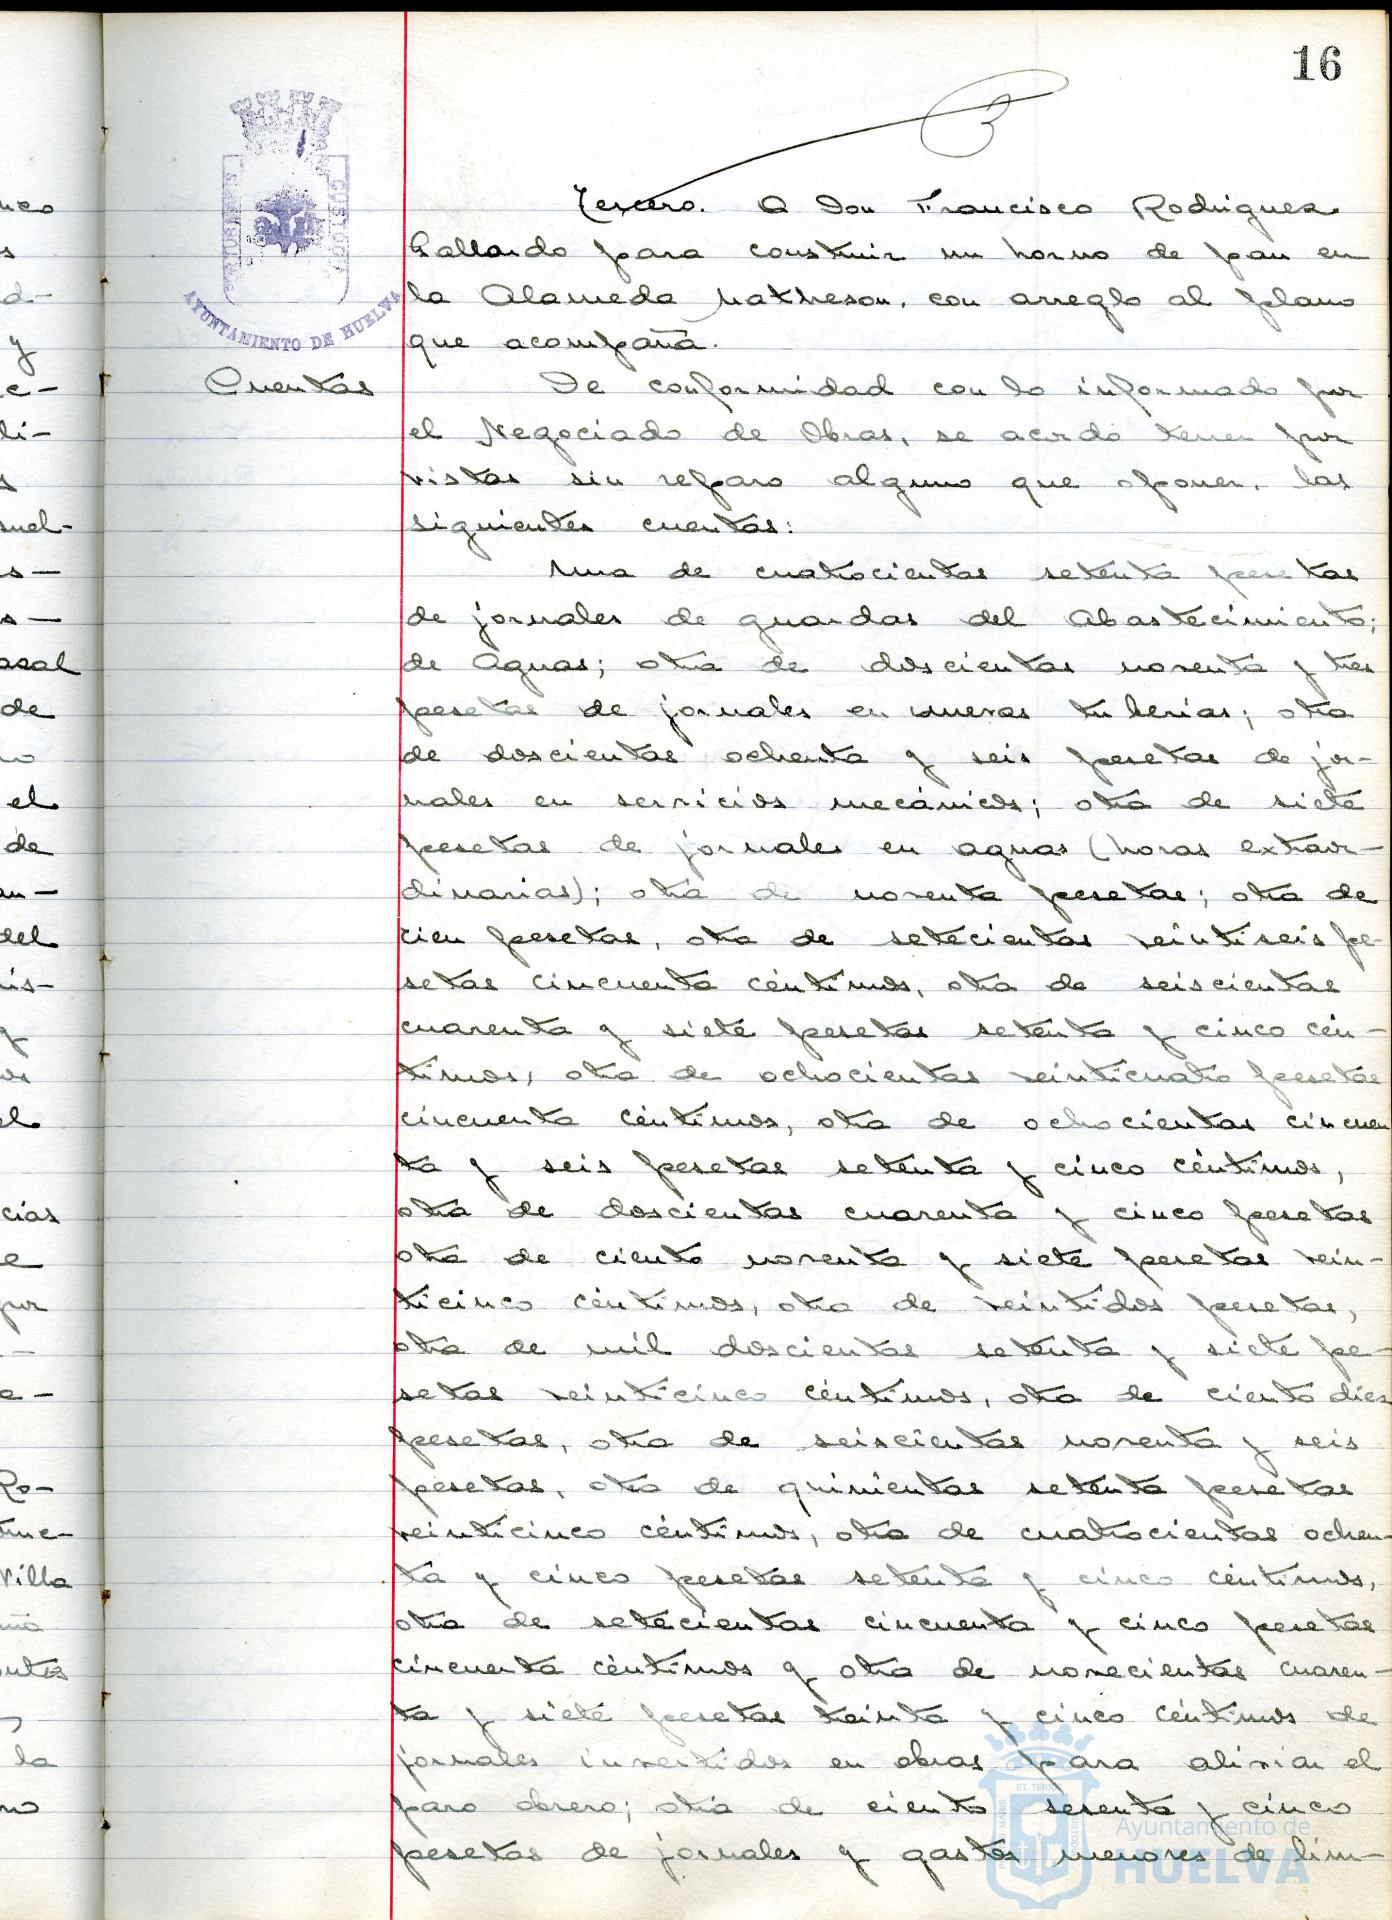 16
Tercero. A Don Francisco Rodriguez
Gallardo para construir un horno de pan en
la Alameda Matheson, con arreglo al plano
que acompaña.
Cuentas
De conformidad con lo informado por
el Negociado de Obras, se acordó tener por
vistas sin reparo alguno que oponer, las
siguientes cuentas:
Una de cuatrocientas setenta pesetas
de jornales de guardas del Abastecimiento;
de Aguas; otra de doscientas noventa y tres
pesetas de jornales en nuevas tuberias; otra
de doscientas ochenta y seis pesetas de jor-
nales en servicios mecánicos; otra de siete
pesetas de jornales en aguas (horas extraor-
dinarias); otra de noventa pesetas; otra de
cien pesetas, otra de setecientas veintiseis pe-
setas cincuenta céntimos, otra de seiscientas
cuarenta y siete pesetas setenta y cinco cén-
timos, otra de ochocientas veinticuatro pesetas
cincuenta céntimos, otra de ochocientas cincuen
ta y seis pesetas setenta y cinco céntimos,
otra de doscientas cuarenta y cinco pesetas
otra de ciento noventa y siete pesetas vein-
ticinco céntimos, otra de veintidos pesetas,
otra de mil doscientas setenta y siete pe-
setas veinticinco céntimos, otra de ciento diez
pesetas, otra de seiscientas noventa y seis
pesetas, otra de quinientas setenta pesetas
veinticinco céntimos, otra de cuatrocientas ochen-
ta y cinco pesetas setenta y cinco céntimos,
otra de setecientas cincuenta y cinco pesetas
cincuenta céntimos y otra de novecientas cuaren-
ta y siete pesetas treinta y cinco céntimos de
jornales invertidos en obras para aliviar el
paro obrero; otra de ciento sesenta y cinco
pesetas de jornales y gastos menores de lim-
AYUNTAMIENTO DE HUELVA
Ayuntamiento de
HUELVA